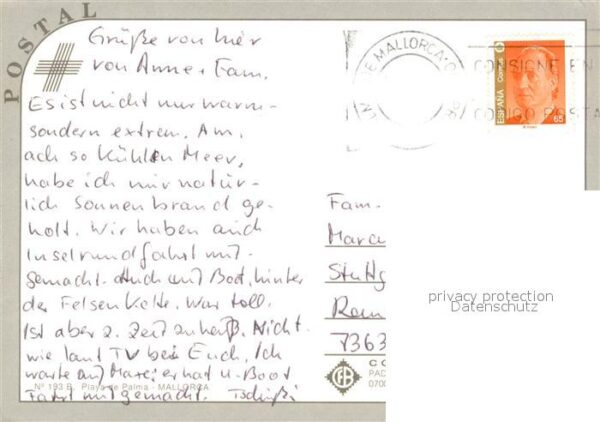 POSTAL
Grüße von hier
von Anne + Fam.
Es ist nicht nur warm -
sondern extrem. Am,
ach so kühlen Meer,
habe ich mir natür-
lich Sonnenbrand ge-
holt. Wir haben auch
Inselrundfahrt mit-
gemacht. Auch auf Boot, hinter
der Felsenkette. War toll.
Ist aber z. Zeit zu heiß. Nicht
wie laut TV bei Euch. Ich
warte auf Marc, er hat U-Boot
Fahrt mitgemacht. Tschüßi
Nº 193 B. Playa de Palma - MALLORCA
DE MALLORCA
CONSIGNE EN
CODIGO POSTA
ESPAÑA Correos
65
Fam.
Marc
Stuttg
Rem
7363
privacy protection
Datenschutz
CO
PAD
070